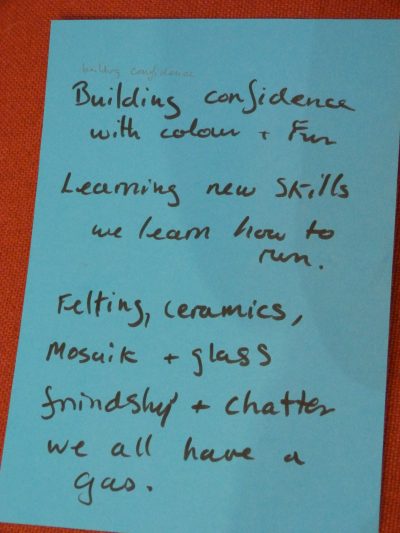 building confidence
Building confidence
with colour + Fun
Learning new skills
we learn how to
run.
Felting, ceramics,
Mosaik + glass
frindship + chatter
we all have a
gas.